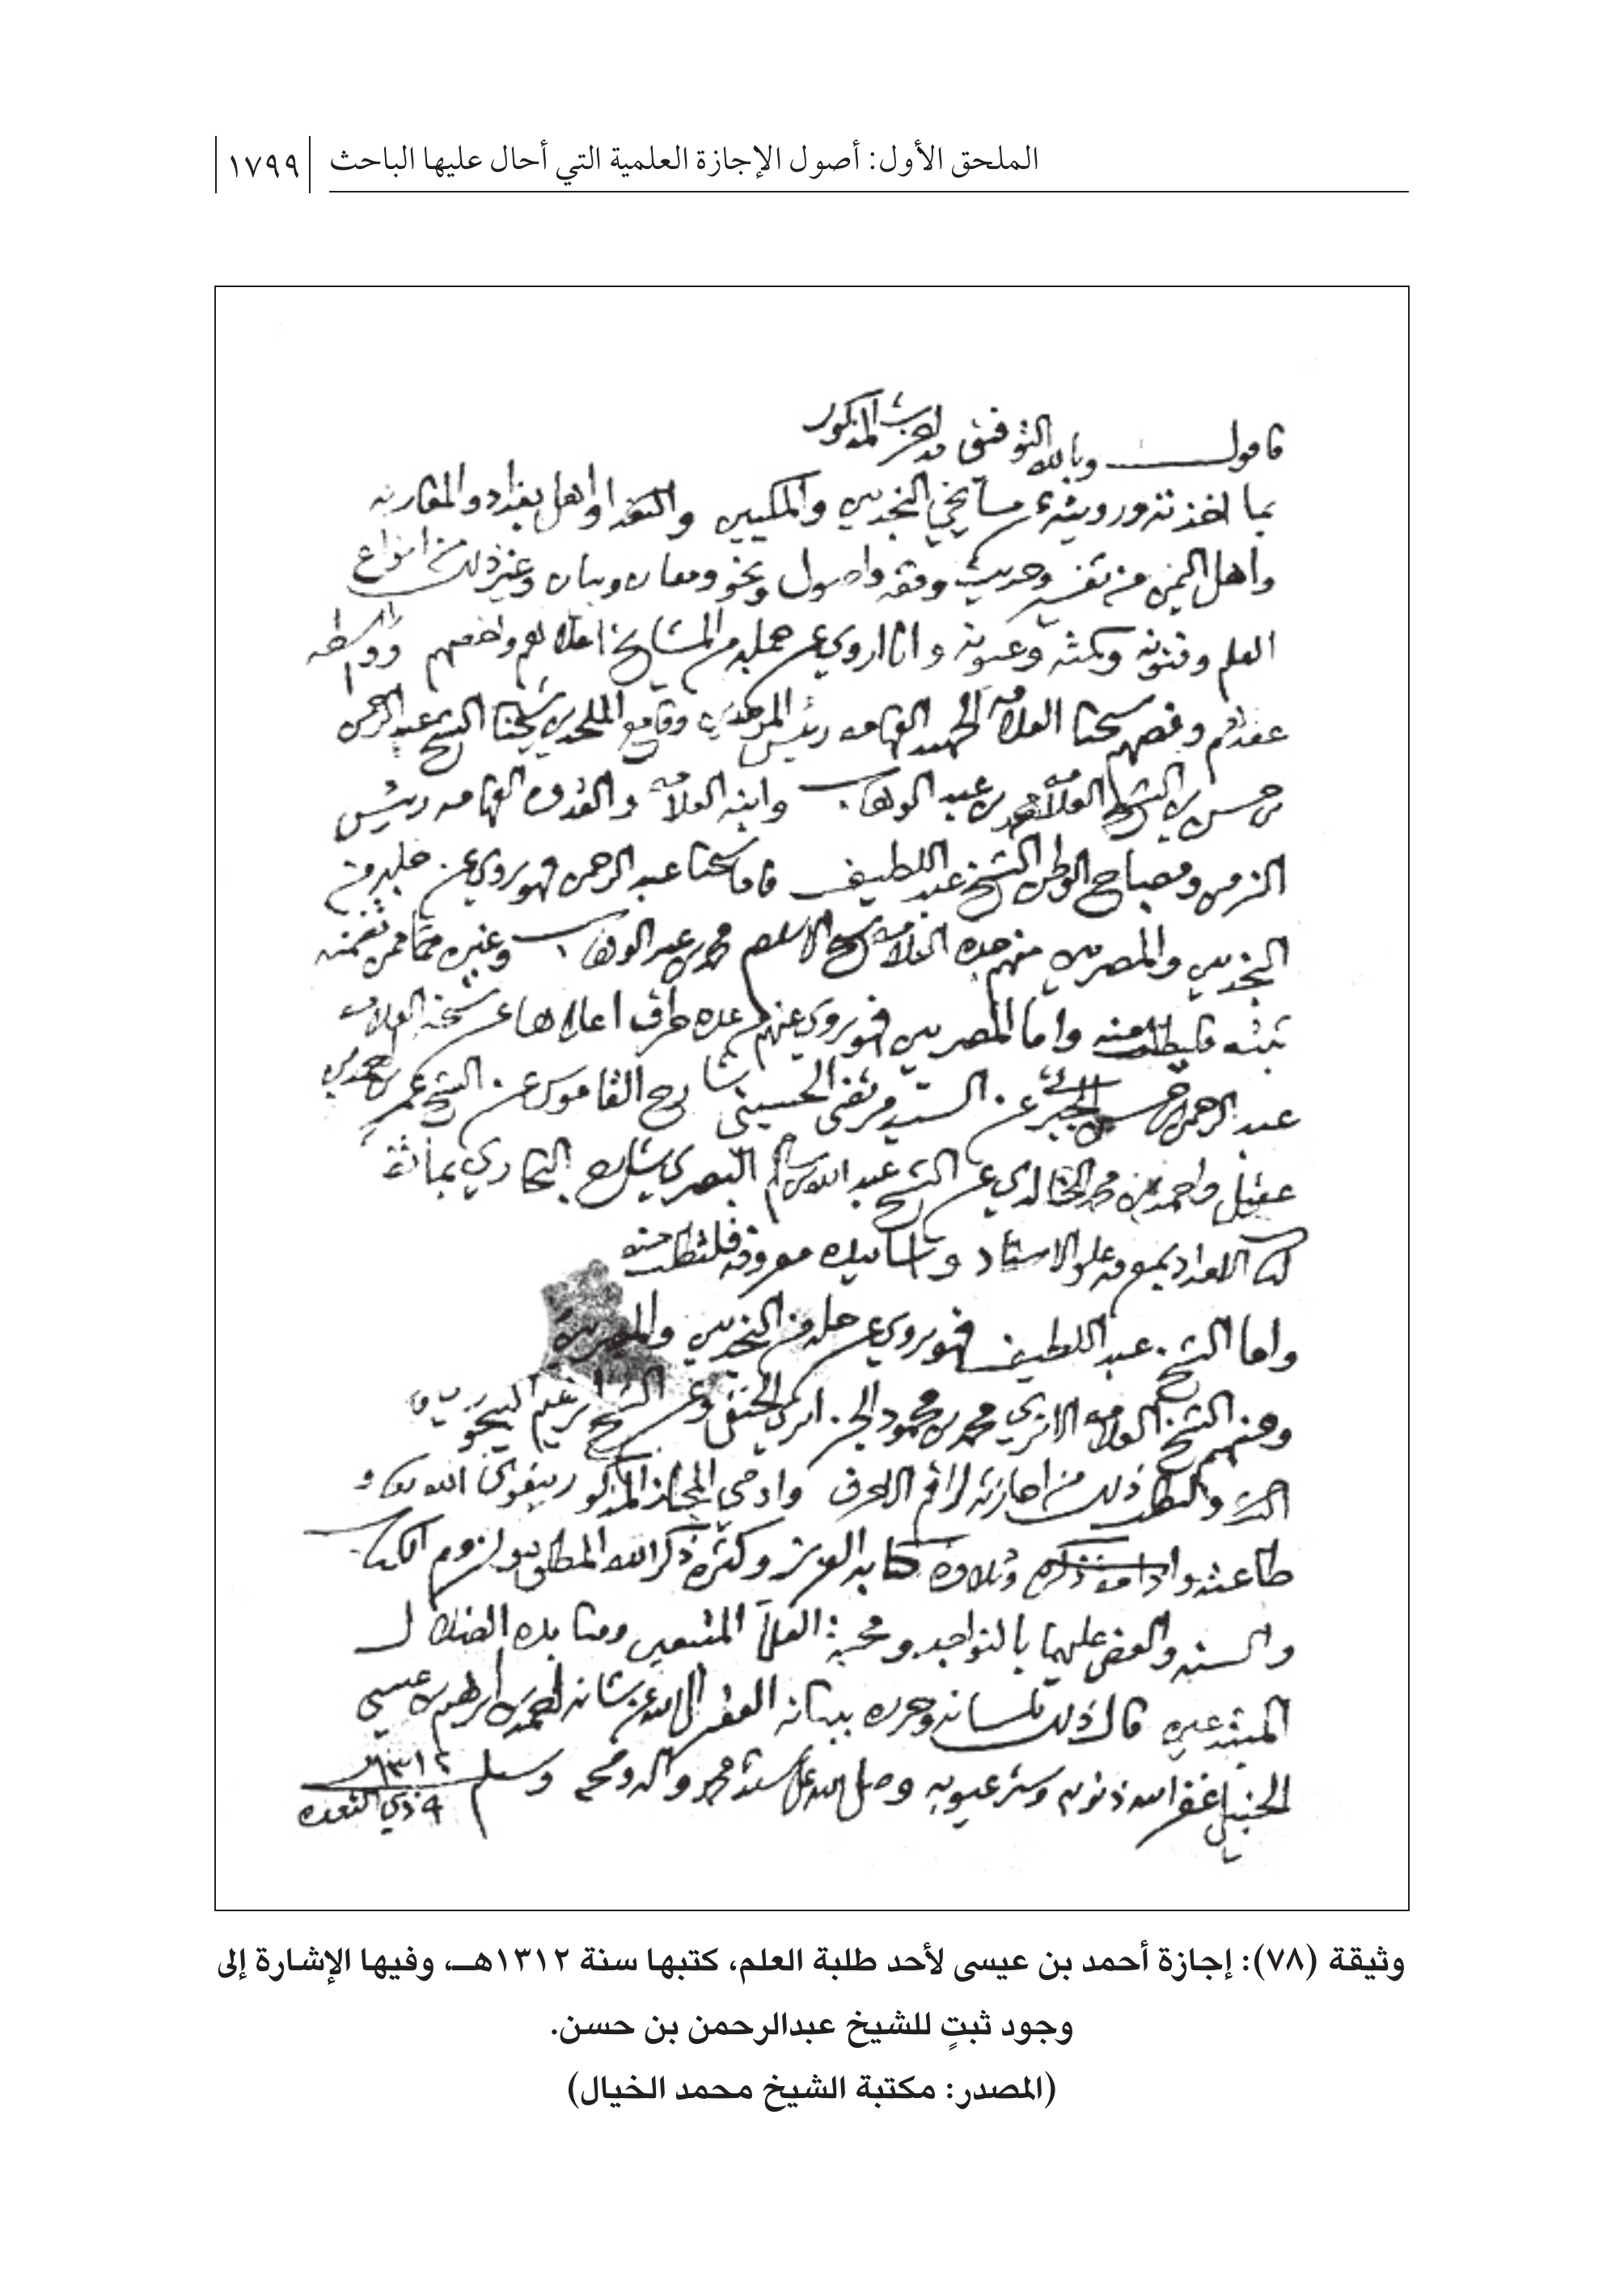 الملحق الأول: أصول الإجازة العلمية التي أحال عليها الباحث
١٧٩٩
فاقول وبالله التوفيق قد اجزت المذكور
بما اخذته ورويته عن مشايخي النجديين والمكيين واهل بغداد والمغاربه
واهل اليمن من تفسير وحديث وفقه واصول ونحو ومعان وبيان وغير ذلك من انواع
العلم وفنونه وانا اروي عن جملة من المشايخ اعلاهم وافضلهم وواسطه
عقدهم شيخنا العلامه الجهبد الفهامه رئيس الموحدين وقامع الملحدين شيخنا الشيخ عبد الرحمن
بن حسن بن الشيخ العلامه محمد بن عبد الوهاب وابنه العلامه والقدوه الفهامه رئيس
الزمن ومصباح الوطن الشيخ عبد اللطيف فاما شيخنا عبد الرحمن فهو يروي عن جلة من
النجديين والمصريين منهم جده العلامه شيخ الاسلام محمد بن عبد الوهاب وغيره مما تضمنه
ثبته فليطلب منه واما المصريين فهو يروي عنهم من عده طرق اعلاها عن شيخه العلامه
عبد الرحمن الجبرتي عن السيد مرتضى الحسيني شارح القاموس عن الشيخ عمر بن احمد بن
عقيل واحمد عن الشيخ عبد الله بن سالم البصري شارح البخاري
كتاب الامداد بمعرفة علو الاسناد واسانيده معروفة فلتطلب منه
واما الشيخ عبد اللطيف فهو يروي عن جلة من النجديين والمصريين
ومنهم الشيخ العلامه محمد بن محمود الجزائري الحنفي وعن الشيخ ابراهيم البيجوري
ذلك من اجازته لراقم الاحرف واوصي المجاز المذكور بتقوى الله تعالى و
طاعته وتلاوة كتابه العزيز وكثرة ذكر الله المطلوب ولزوم الكتاب
والسنه والعض عليهما بالنواجد ومحبة العلماء المتبعين ومنابذه الضلال
المبتدعين قال ذلك بلسانه وحرره ببنانه الفقير الى الله عز شانه احمد بن ابراهيم بن عيسى
الحنبلي غفر الله ذنوبه وستر عيوبه وصلى الله على سيدنا محمد واله وصحبه وسلم ١٣١٢
٩ ذي القعده
وثيقة (٧٨): إجازة أحمد بن عيسى لأحد طلبة العلم، كتبها سنة ١٣١٢هـ، وفيها الإشارة إلى
وجود ثبتٍ للشيخ عبدالرحمن بن حسن.
(المصدر: مكتبة الشيخ محمد الخيال)